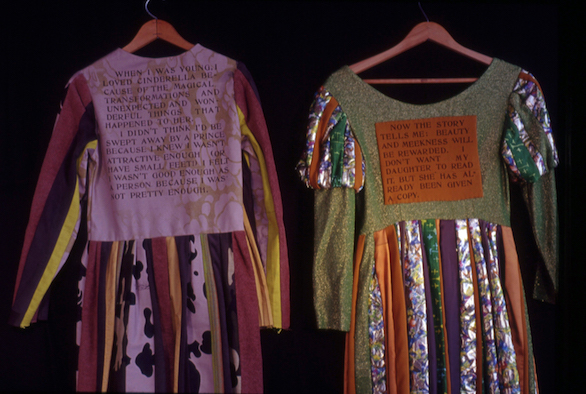 WHEN I WAS YOUNG I
LOVED CINDERELLA BE
CAUSE OF THE MAGICAL
TRANSFORMATIONS AND
UNEXPECTED AND WON
DERFUL THINGS THAT
HAPPENED TO HER.
I DIDN'T THINK I'D BE
SWEPT AWAY BY A PRINCE
BECAUSE I KNEW I WASN'T
ATTRACTIVE ENOUGH (OR
HAVE SMALL FEET.) I FELT
I WASN'T GOOD ENOUGH AS
A PERSON BECAUSE I WAS
NOT PRETTY ENOUGH.
NOW THE STORY
TELLS ME: BEAUTY
AND MEEKNESS WILL
BE REWARDED. I
DON'T WANT MY
DAUGHTER TO READ
IT. BUT SHE HAS AL/
READY BEEN GIVEN
A COPY.